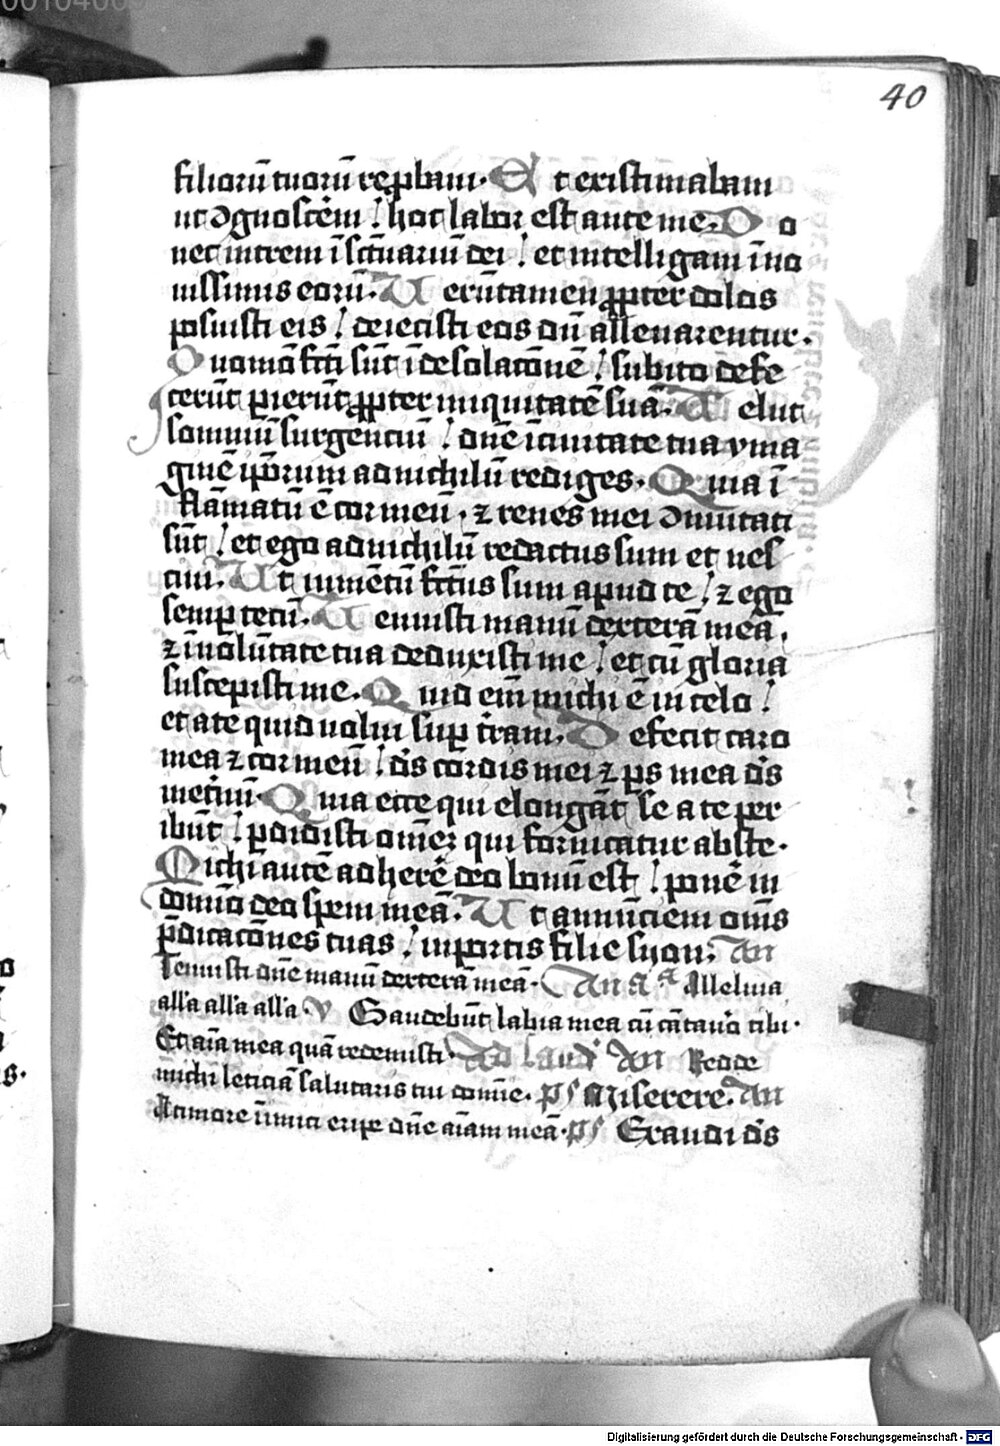 40
filiorū tuorū rep̱baui. Et existimabam
ut ɔgnoscērem hoc labor est ante me. Do
nec intrem ī sctūariū dei et intelligam ī no
uissimis eorū. Uerūtamen p̱pter dolos
posuisti eis deiecisti eos dū alleuarentur.
Quomō fcti sūt ī desolatōnē subito defe
cerūt perierūt p̱pter iniquitatē suā. Uelut
somniū surgenciū dnē ī ciuitate tua ymа
ginē ip̄orum ad nichilū rediges. Quia ī
flāmatū ē cor meū. ⁊ renes mei ɔmutati
sūt et ego ad nichilū redactus sum et nes
ciui. Ut iumētū fctūs sum apud te ⁊ ego
semp̱ tecū. Tenuisti manū dexterā meā.
⁊ in uolūtate tua deduxisti me et cū gloria
suscepisti me. Quid em̄ michi ē in celo
et a te quid uolui sup̱ tram. Defecit caro
mea ⁊ cor meū ds̄ cordis mei ⁊ ps̄ mea ds̄
in et̄nū. Quia ecce qui elongāt se a te per
ibūt p̱didisti omēs qui fornicātur abs te.
Michi autē adherē deo bonū est ponē in
domīo deo spem meā. Ut annūciem omīs
p̄dicatōnes tuas in portis filie syon. An
Tenuisti dnē manū dexterā meā. An Alleluia
all'a all'a all'a. V Gaudebūt labia mea cū cātau'o tibi.
Et aīa mea quā redemisti. Ad laud' An Redde
michi leticiā salutaris tui domīe. ps Miserere. An
A timore inimici eripe dnē aīam meā. ps Exaudi ds̄
Digitalisierung gefördert durch die Deutsche Forschungsgemeinschaft - DFG